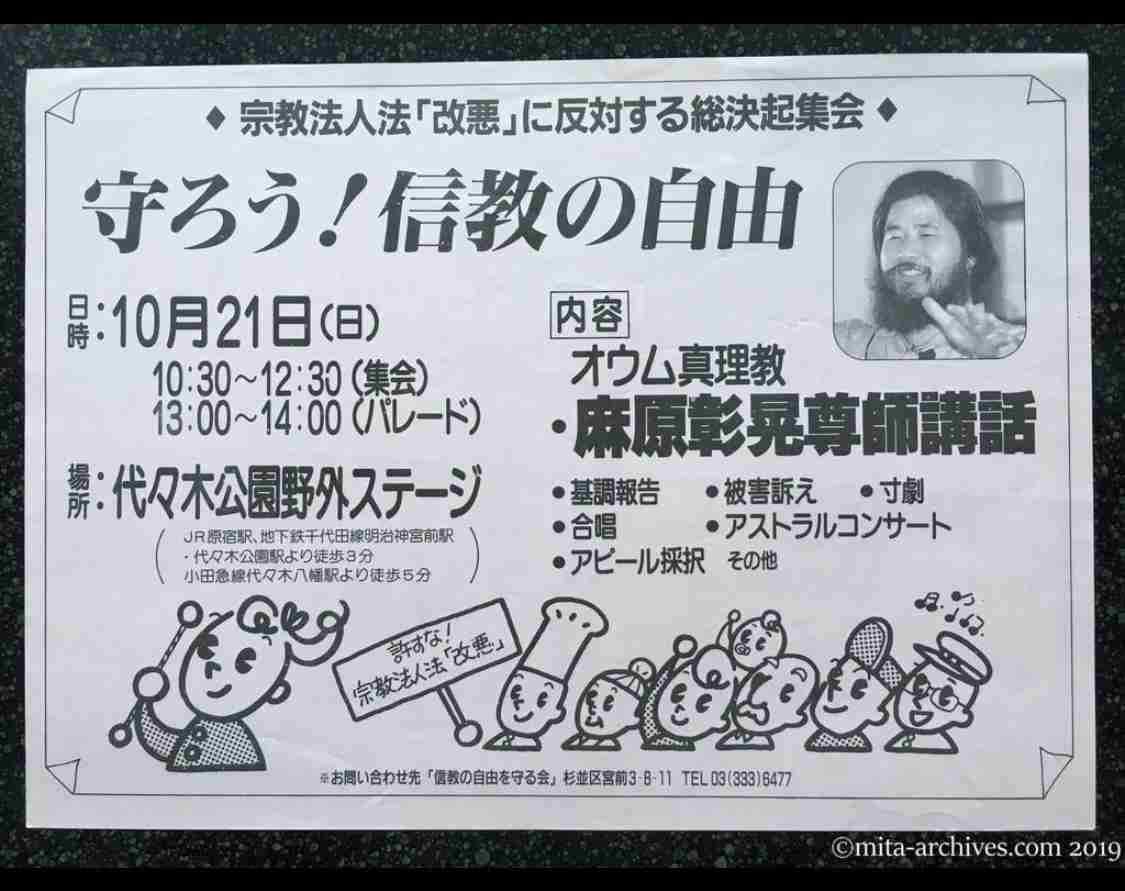 ◆ 宗教法人法「改悪」に反対する総決起集会 ◆
守ろう！信教の自由
日時：10月21日（日）
10：30～12：30（集会）
13：00～14：00（パレード）
場所：代々木公園野外ステージ
（JR原宿駅、地下鉄千代田線明治神宮前駅
・代々木公園駅より徒歩3分
小田急線代々木八幡駅より徒歩5分）
内容
オウム真理教
・麻原彰晃尊師講話
●基調報告 ●被害訴え ●寸劇
●合唱 ●アストラルコンサート
●アピール採択 その他
許すな！
宗教法人法「改悪」
※お問い合わせ先「信教の自由を守る会」杉並区宮前3-8-11 TEL 03(333)6477
©mita-archives.com 2019